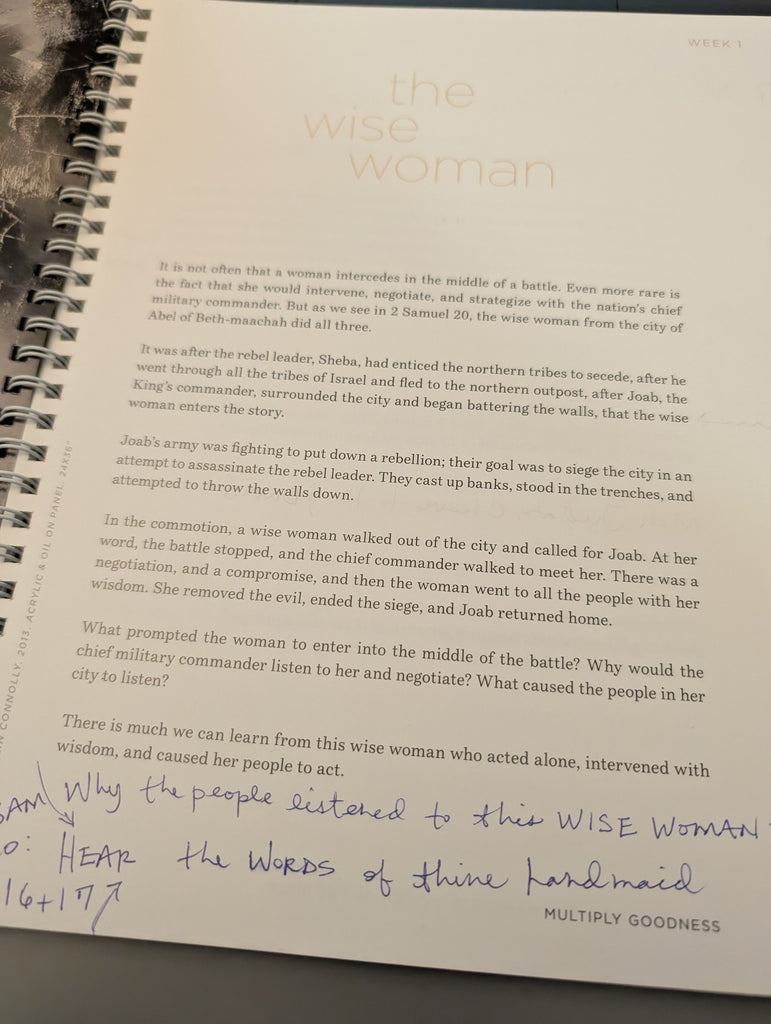 WEEK 1
the
wise
woman
It is not often that a woman intercedes in the middle of a battle. Even more rare is
the fact that she would intervene, negotiate, and strategize with the nation's chief
military commander. But as we see in 2 Samuel 20, the wise woman from the city of
Abel of Beth-maachah did all three.
It was after the rebel leader, Sheba, had enticed the northern tribes to secede, after he
went through all the tribes of Israel and fled to the northern outpost, after Joab, the
King's commander, surrounded the city and began battering the walls, that the wise
woman enters the story.
Joab's army was fighting to put down a rebellion; their goal was to siege the city in an
attempt to assassinate the rebel leader. They cast up banks, stood in the trenches, and
attempted to throw the walls down.
In the commotion, a wise woman walked out of the city and called for Joab. At her
word, the battle stopped, and the chief commander walked to meet her. There was a
negotiation, and a compromise, and then the woman went to all the people with her
wisdom. She removed the evil, ended the siege, and Joab returned home.
What prompted the woman to enter into the middle of the battle? Why would the
chief military commander listen to her and negotiate? What caused the people in her
city to listen?
There is much we can learn from this wise woman who acted alone, intervened with
wisdom, and caused her people to act.
Why the people listened to this WISE WOMAN
HEAR the WORDS of thine handmaid
16+17
MULTIPLY GOODNESS
CONNOLLY, 2013, ACRYLIC & OIL ON PANEL, 24X36"